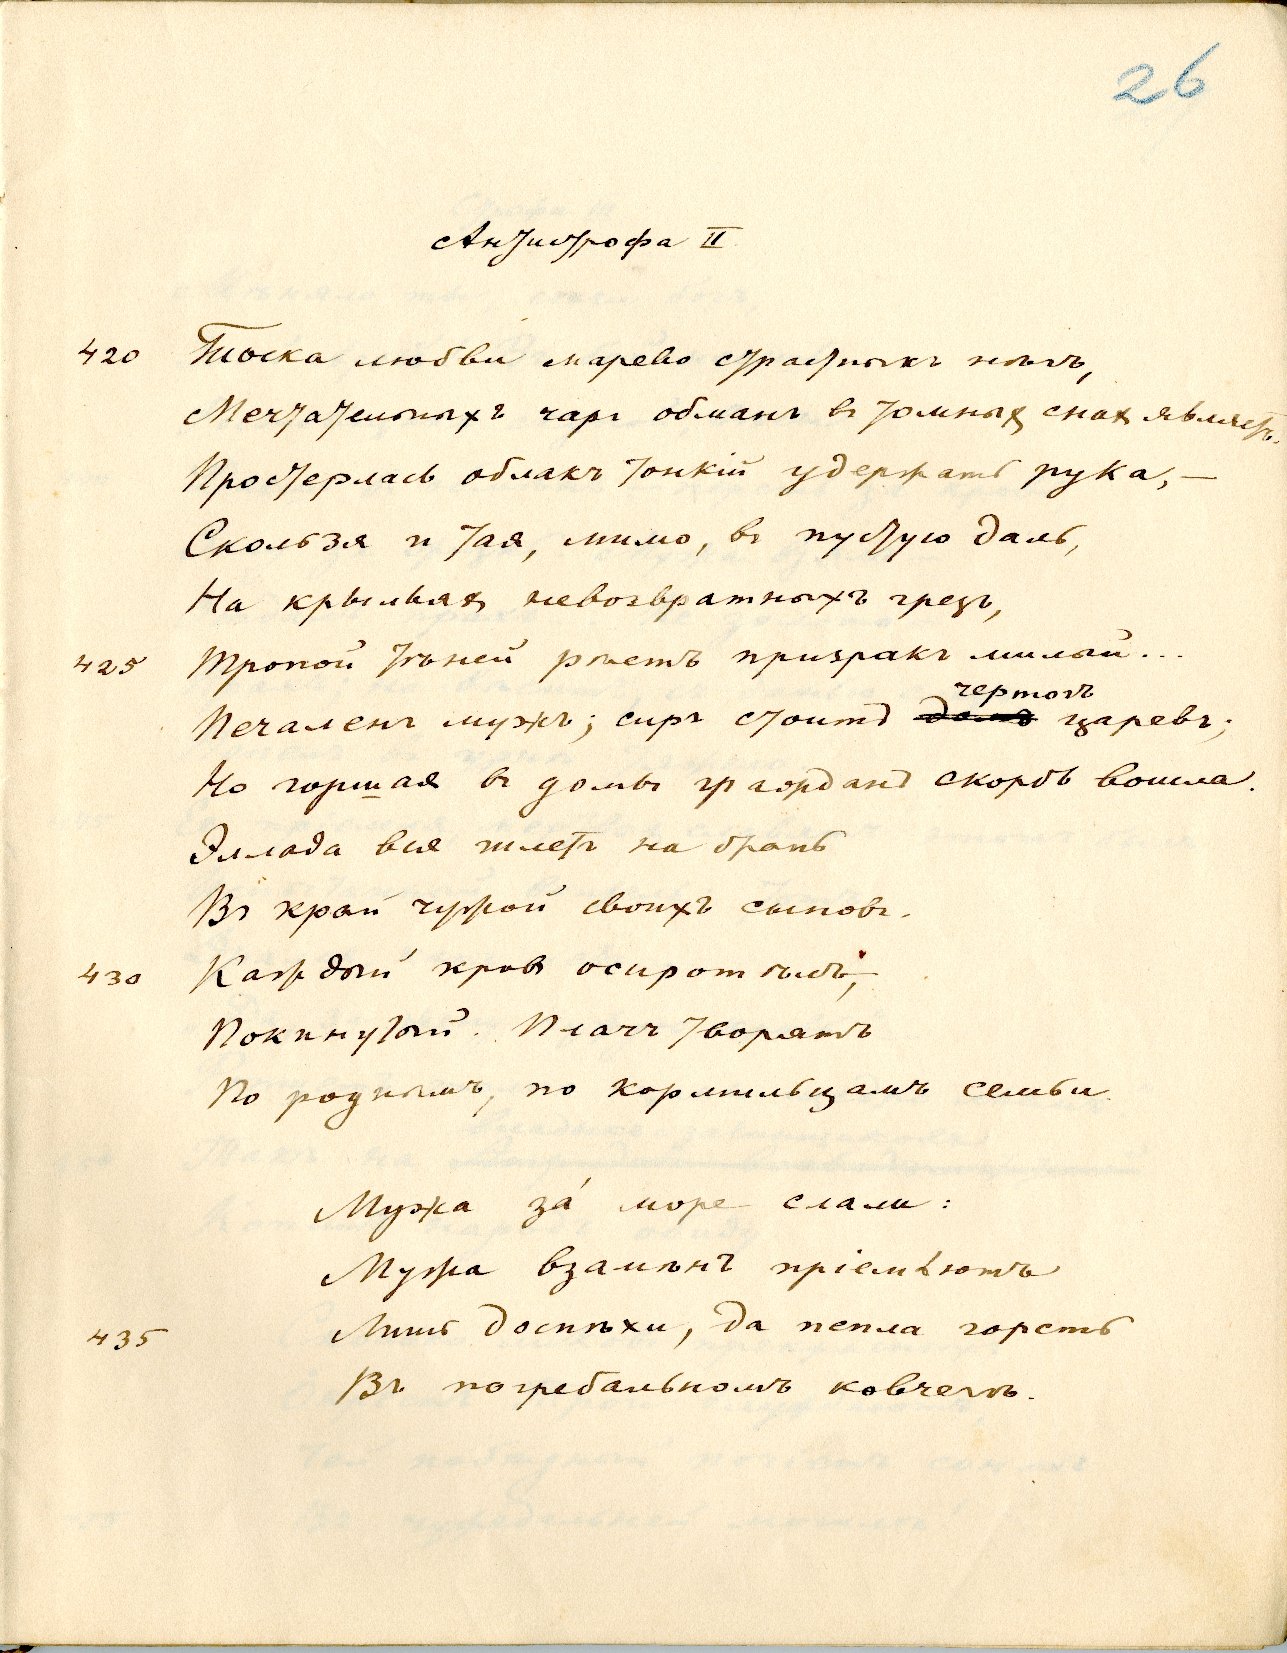 26
Антистрофа II
420 Тоска любви марево страстныхъ нѣгъ,
Мечтательныхъ чаръ обманъ въ томныхъ снахъ являетъ.
Простерлась облакъ тонкій удержать рука, —
Скользя и тая, мимо, въ пустую даль,
На крыльяхъ невозвратныхъ грезъ,
425 Тропой тѣней рѣетъ призракъ милый...
чертогъ
Печаленъ мужъ; сиръ стоитъ домъ царевъ;
Но горшая въ домы гражданъ скорбь вошла.
Эллада вся шлетъ на брань
Въ край чужой своихъ сыновъ.
430 Каждый кровъ осиротѣлъ,
Покинутый. Плачъ творятъ
По роднымъ, по кормильцамъ семьи.
Мужа за́ море слали:
Мужа взамѣнъ пріемлютъ
435 Лишь доспѣхи, да пепла горсть
Въ погребальномъ ковчегѣ.